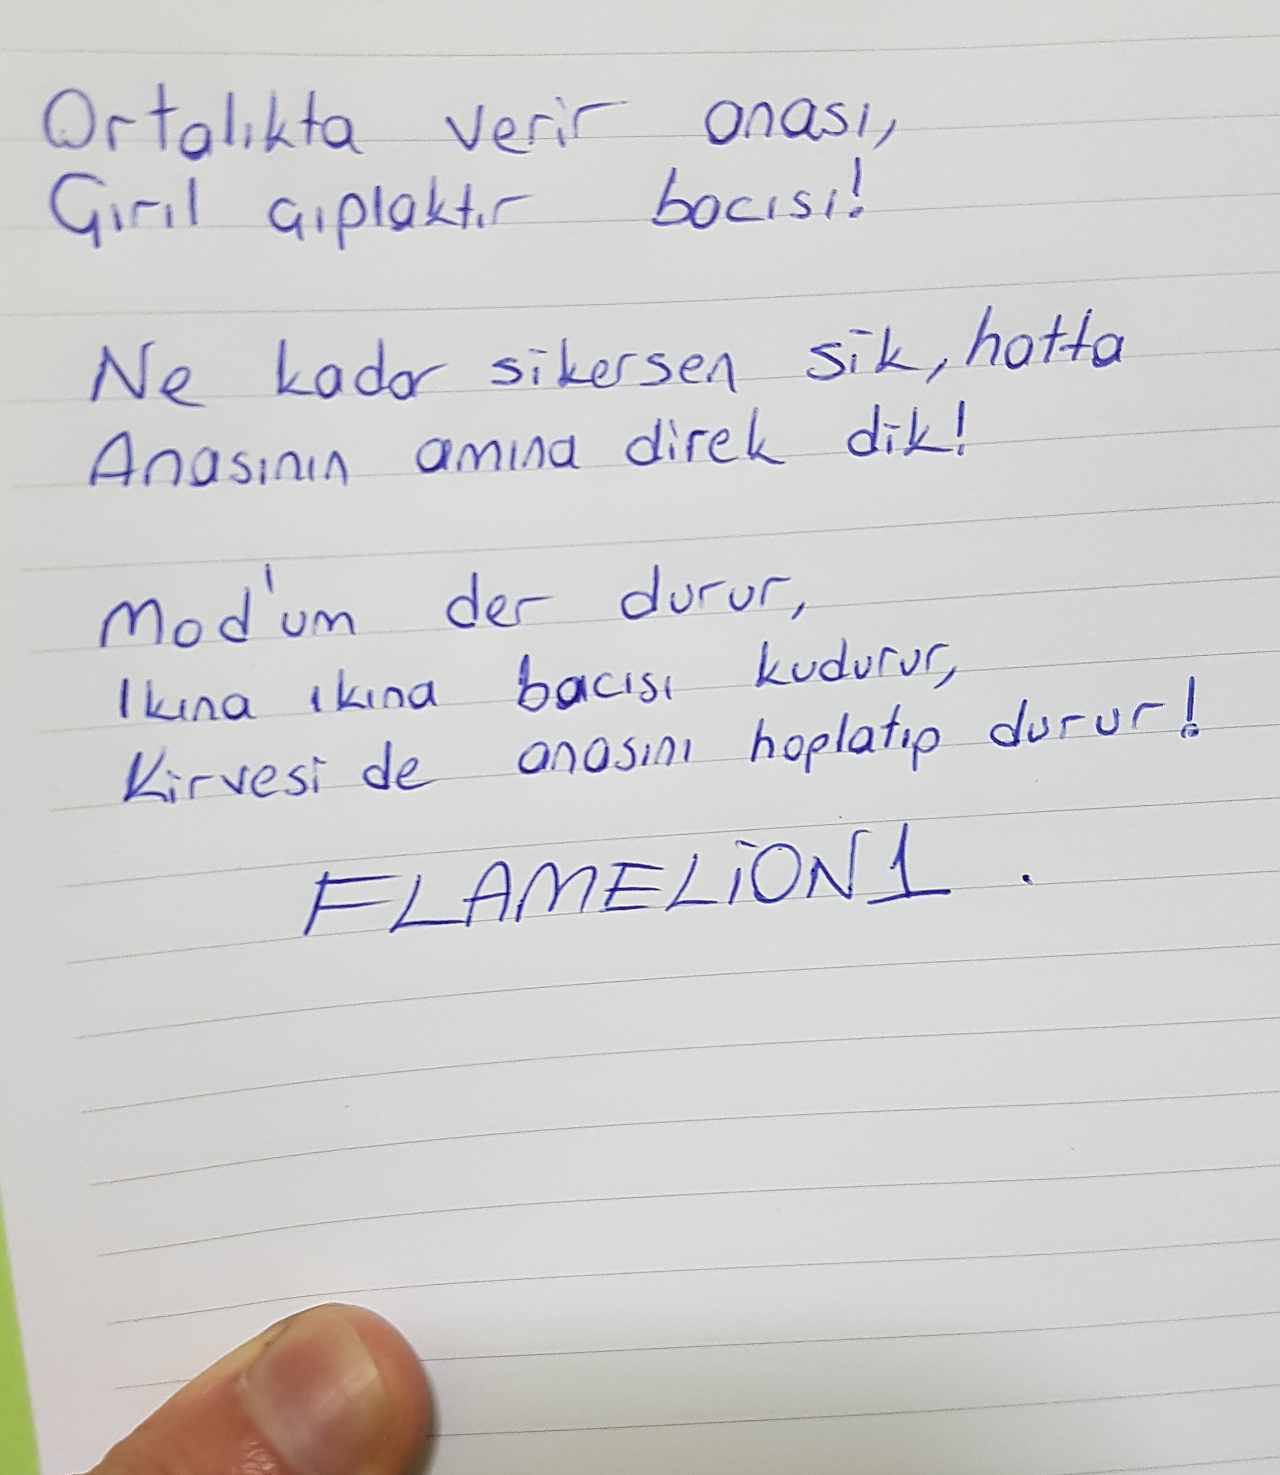 Ortalıkta verir anası,
Gırıl gıplaktır bacısı!
Ne kadar sikersen sik, hatta
Anasının amına direk dik!
Mod'um der durur,
Ikına ıkına bacısı kudurur,
Kirvesi de anasını hoplatıp durur!
FLAMELİON1.